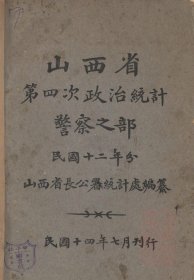 山西省
第四次政治統計
警察之部
民國十二年份
山西省長公署統計處編纂
民國十四年七月刊行